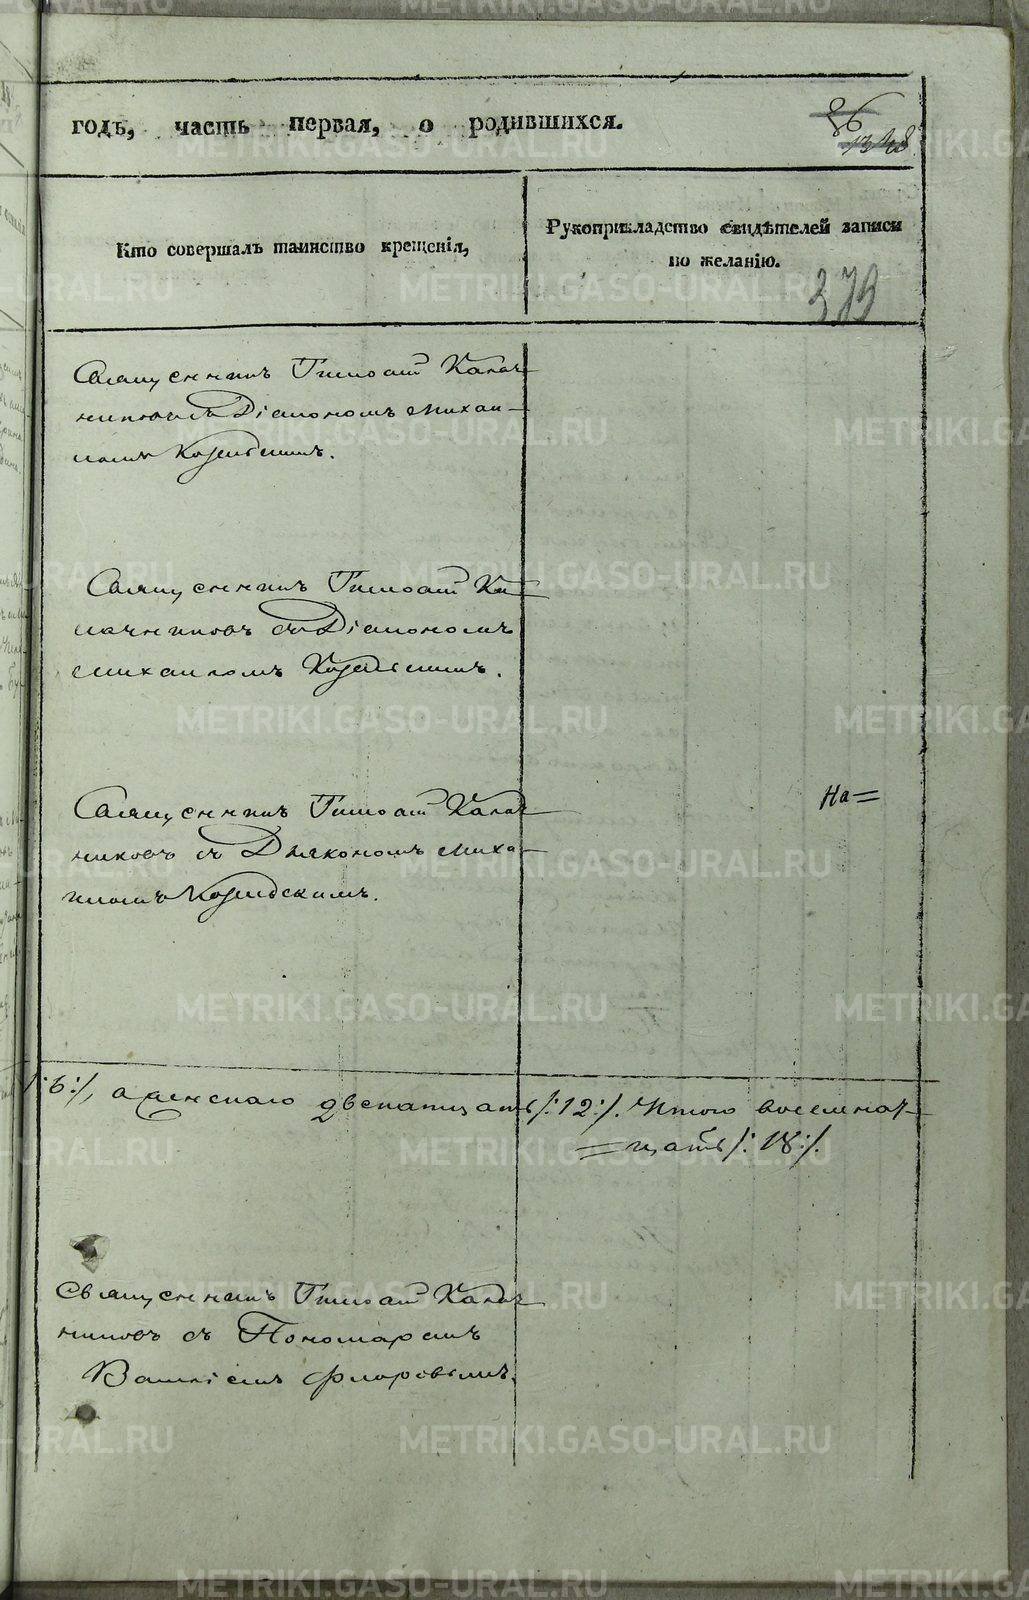 годъ, часть первая, о родившихся.
86
Кто совершалъ таинство крещенія,
Рукоприкладство свидѣтелей записи
по желанію.
379
Священникъ Тимофей Калач-
никовъ съ Діакономъ Михаи-
ломъ Козельскимъ.
Священникъ Тимофей Ка-
лачниковъ съ Діакономъ
Михаиломъ Козельскимъ.
Священникъ Тимофей Калач-
никовъ съ Дьякономъ Миха-
иломъ Козельскимъ.
На=
/:6:/, а женскаго двенатцать /:12:/. Итого восемнат-
=цать /:18:/.
Священникъ Тимофей Калач-
никовъ съ Пономаремъ
Василіемъ Флоровымъ.
METRIKI.GASO-URAL.RU